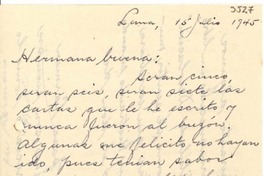 3527
Lima, 15 Julio 1945
Hermana buena:
Seran cinco,
seran seis, seran siete las
cartas que le he escrito y
nunca fueron al buzón.
Algunas me felicito no hayan
ido, pues tenian sabor